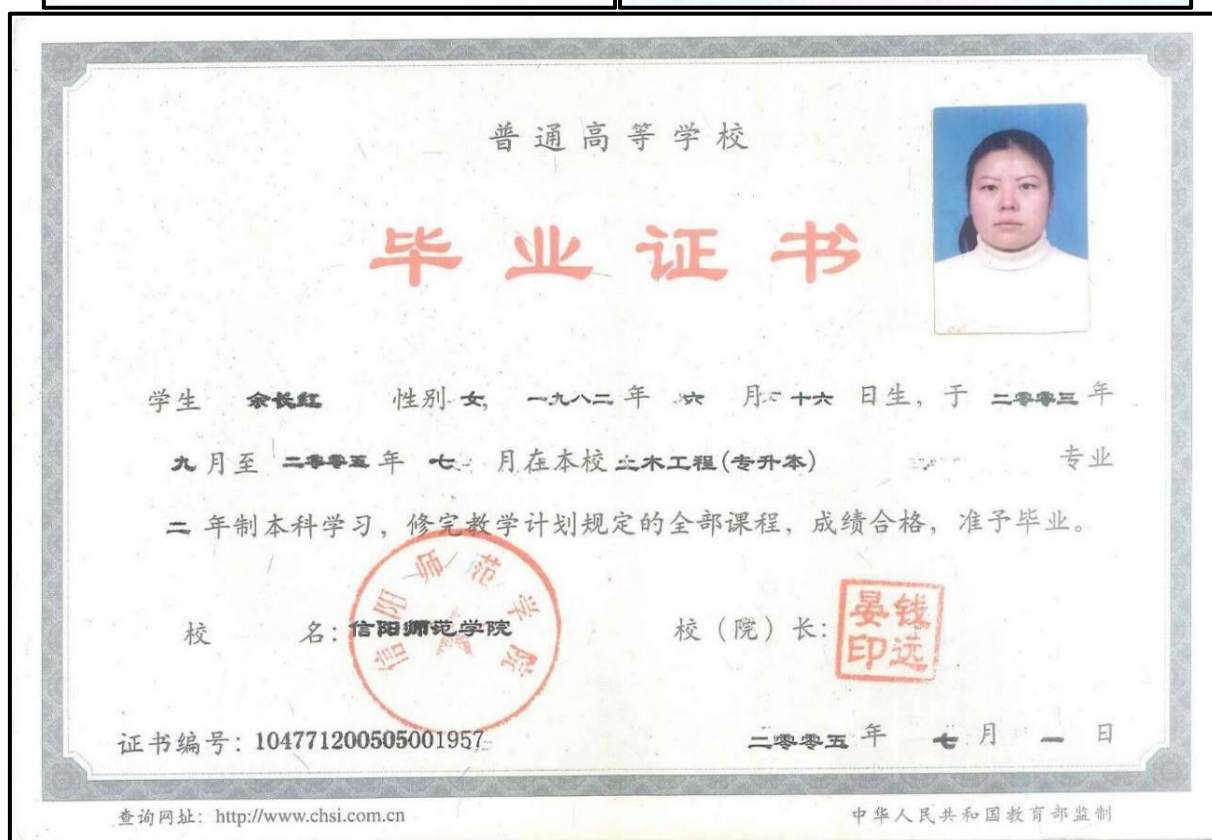 普通高等学校
毕业证书
学生 余长红 性别 女, 一九八二年 六 月二十六 日生, 于 二零零三 年
九 月至 二零零五 年 七 月在本校 土木工程(专升本) 专业
二 年制本科学习, 修完教学计划规定的全部课程, 成绩合格, 准予毕业。
校 名: 信阳师范学院 校(院)长:
信阳师范学院
钱远晏印
证书编号: 104771200505001957 二零零五 年 七 月 一 日
查询网址: http://www.chsi.com.cn 中华人民共和国教育部监制